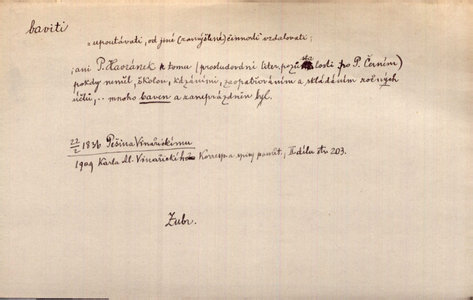 baviti
„upoutávati, od jiné (zamýšlené) činnosti vzdalovati;
„ani P. Havránek k tomu (prostudování liter. pozůstalosti po P. Černém)
pokdy neměl, školou, kázáními, zaopatřováním a skládáním ročných
účtů, .. mnoho baven a zaneprázdněn byl.
22/2 1836 Pešina Vinařickému
1909 Karla Al. Vinařického Korresp. a spisy pamět., II dílu str. 203.
Zubr.